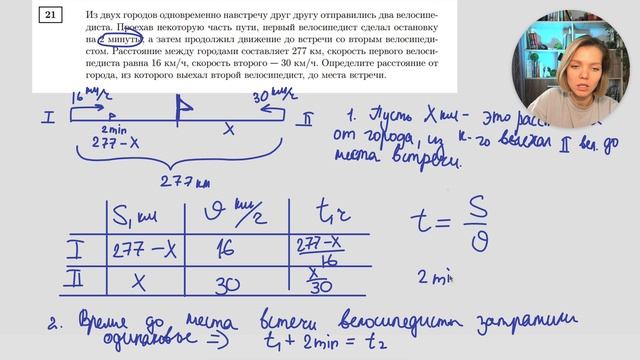 21
Из двух городов одновременно навстречу друг другу отправились два велосипе-
диста. Проехав некоторую часть пути, первый велосипедист сделал остановку
на 2 минуты, а затем продолжил движение до встречи со вторым велосипеди-
стом. Расстояние между городами составляет 277 км, скорость первого велоси-
педиста равна 16 км/ч, скорость второго — 30 км/ч. Определите расстояние от
города, из которого выехал второй велосипедист, до места встречи.
16 км/ч
30 км/ч
I
2min
X
II
277-X
277 км
1. Пусть X км - это расс
от города, из к-го выехал II вел. до
места встречи.
S, км
υ км/ч
t, ч
I
277-X
16
277-X
16
II
X
30
X
30
t = S
υ
2 min
2. Время до места встечи велосипедисты затратили
одинаковое ⇒ t₁ + 2min = t₂